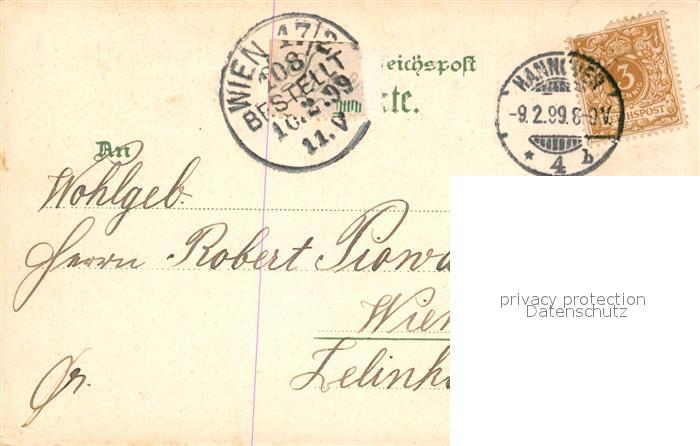 WIEN 17/2
108
BESTELLT
10.2.99
11.V
eichspost
te.
HANNOVER
-9.2.99.8-9V.
* 4 b
3
HSPOST
An
Wohlgeb.
Herrn Robert Piowa
Wien
Zelinka
Dr.
privacy protection
Datenschutz